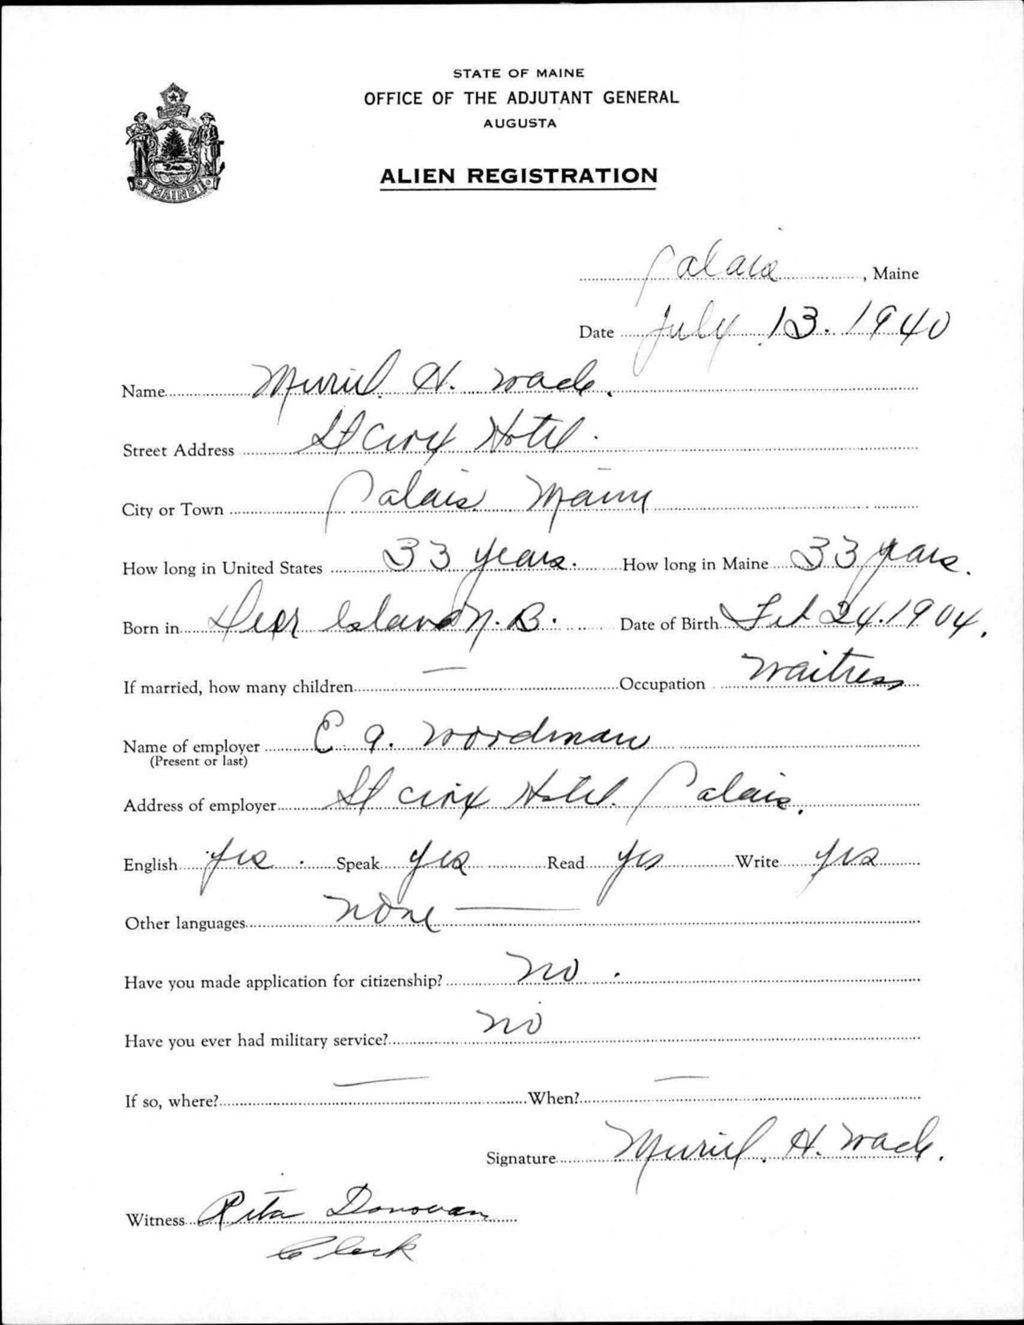 STATE OF MAINE
OFFICE OF THE ADJUTANT GENERAL
AUGUSTA
ALIEN REGISTRATION
MAINE
Calais, Maine
Date July 13. 1940
Name Muriel H. Wade.
Street Address St Croix Hotel.
City or Town Calais Maine
How long in United States 33 years. How long in Maine 33 years.
Born in Deer Island N.B. Date of Birth Feb 24. 1904.
If married, how many children — Occupation Waitress
Name of employer E. A. Woodman
(Present or last)
Address of employer St Croix Hotel. Calais.
English yes. Speak yes Read yes Write yes
Other languages none —
Have you made application for citizenship? no.
Have you ever had military service? no
If so, where? — When? —
Signature Muriel. H. Wade.
Witness Rita Donovan
Clerk